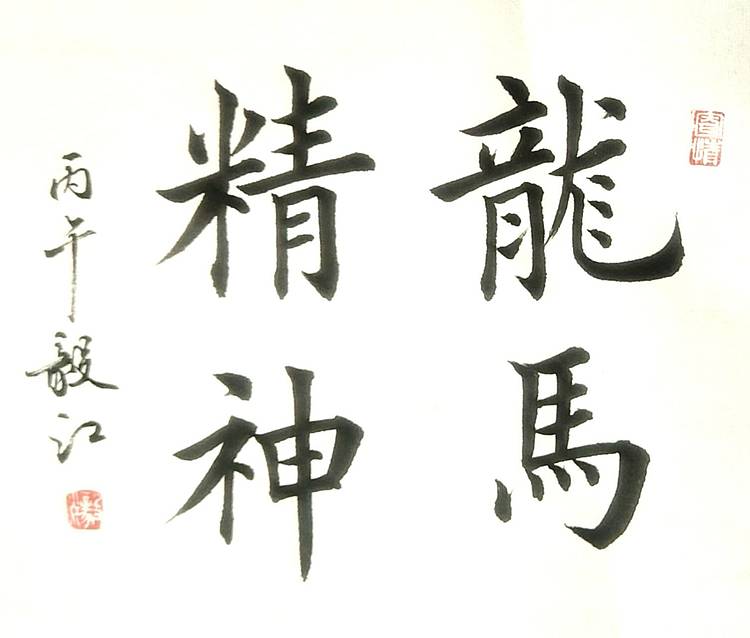 龍馬
精神
丙午毅江